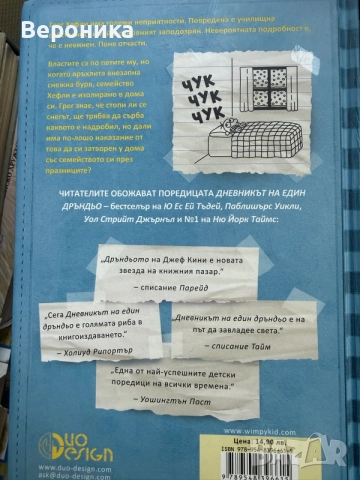 Вероника
неприятности. Повредена е училищна
заподозрян. Невероятната подробност е,
че е невинен. Поне отчасти.
Властите са по петите му, но
когато връхлита внезапна
снежна буря, семейство
Хефли е изолирано в дома
си. Грег знае, че стопи ли се
снегът, ще трябва да сърба
каквото е надробил, но дали
има по-лошо наказание от
това да си затворен у дома
със семейството си през
празниците?
ЧУК
ЧУК
ЧУК
ЧИТАТЕЛИТЕ ОБОЖАВАТ ПОРЕДИЦАТА ДНЕВНИКЪТ НА ЕДИН
ДРЪНДЬО – бестселър на Ю Ес Ей Тъдей, Паблишърс Уикли,
Уол Стрийт Джърнъл и №1 на Ню Йорк Таймс:
„Дръндьото на Джеф Кини е новата
звезда на книжния пазар.“
– списание Парейд
„Сега Дневникът на един
дръндьо е голямата риба в
книгоиздаването.“
– Холиуд Рипортър
„Дневникът на един дръндьо е на
път да завладее света.“
– списание Тайм
„Една от най-успешните детски
поредици на всички времена.“
– Уошингтън Пост
DUO
DESIGN
www.duo-design.com
ask@duo-design.com
www.wimpykid.com
Цена: 14,90 лв.